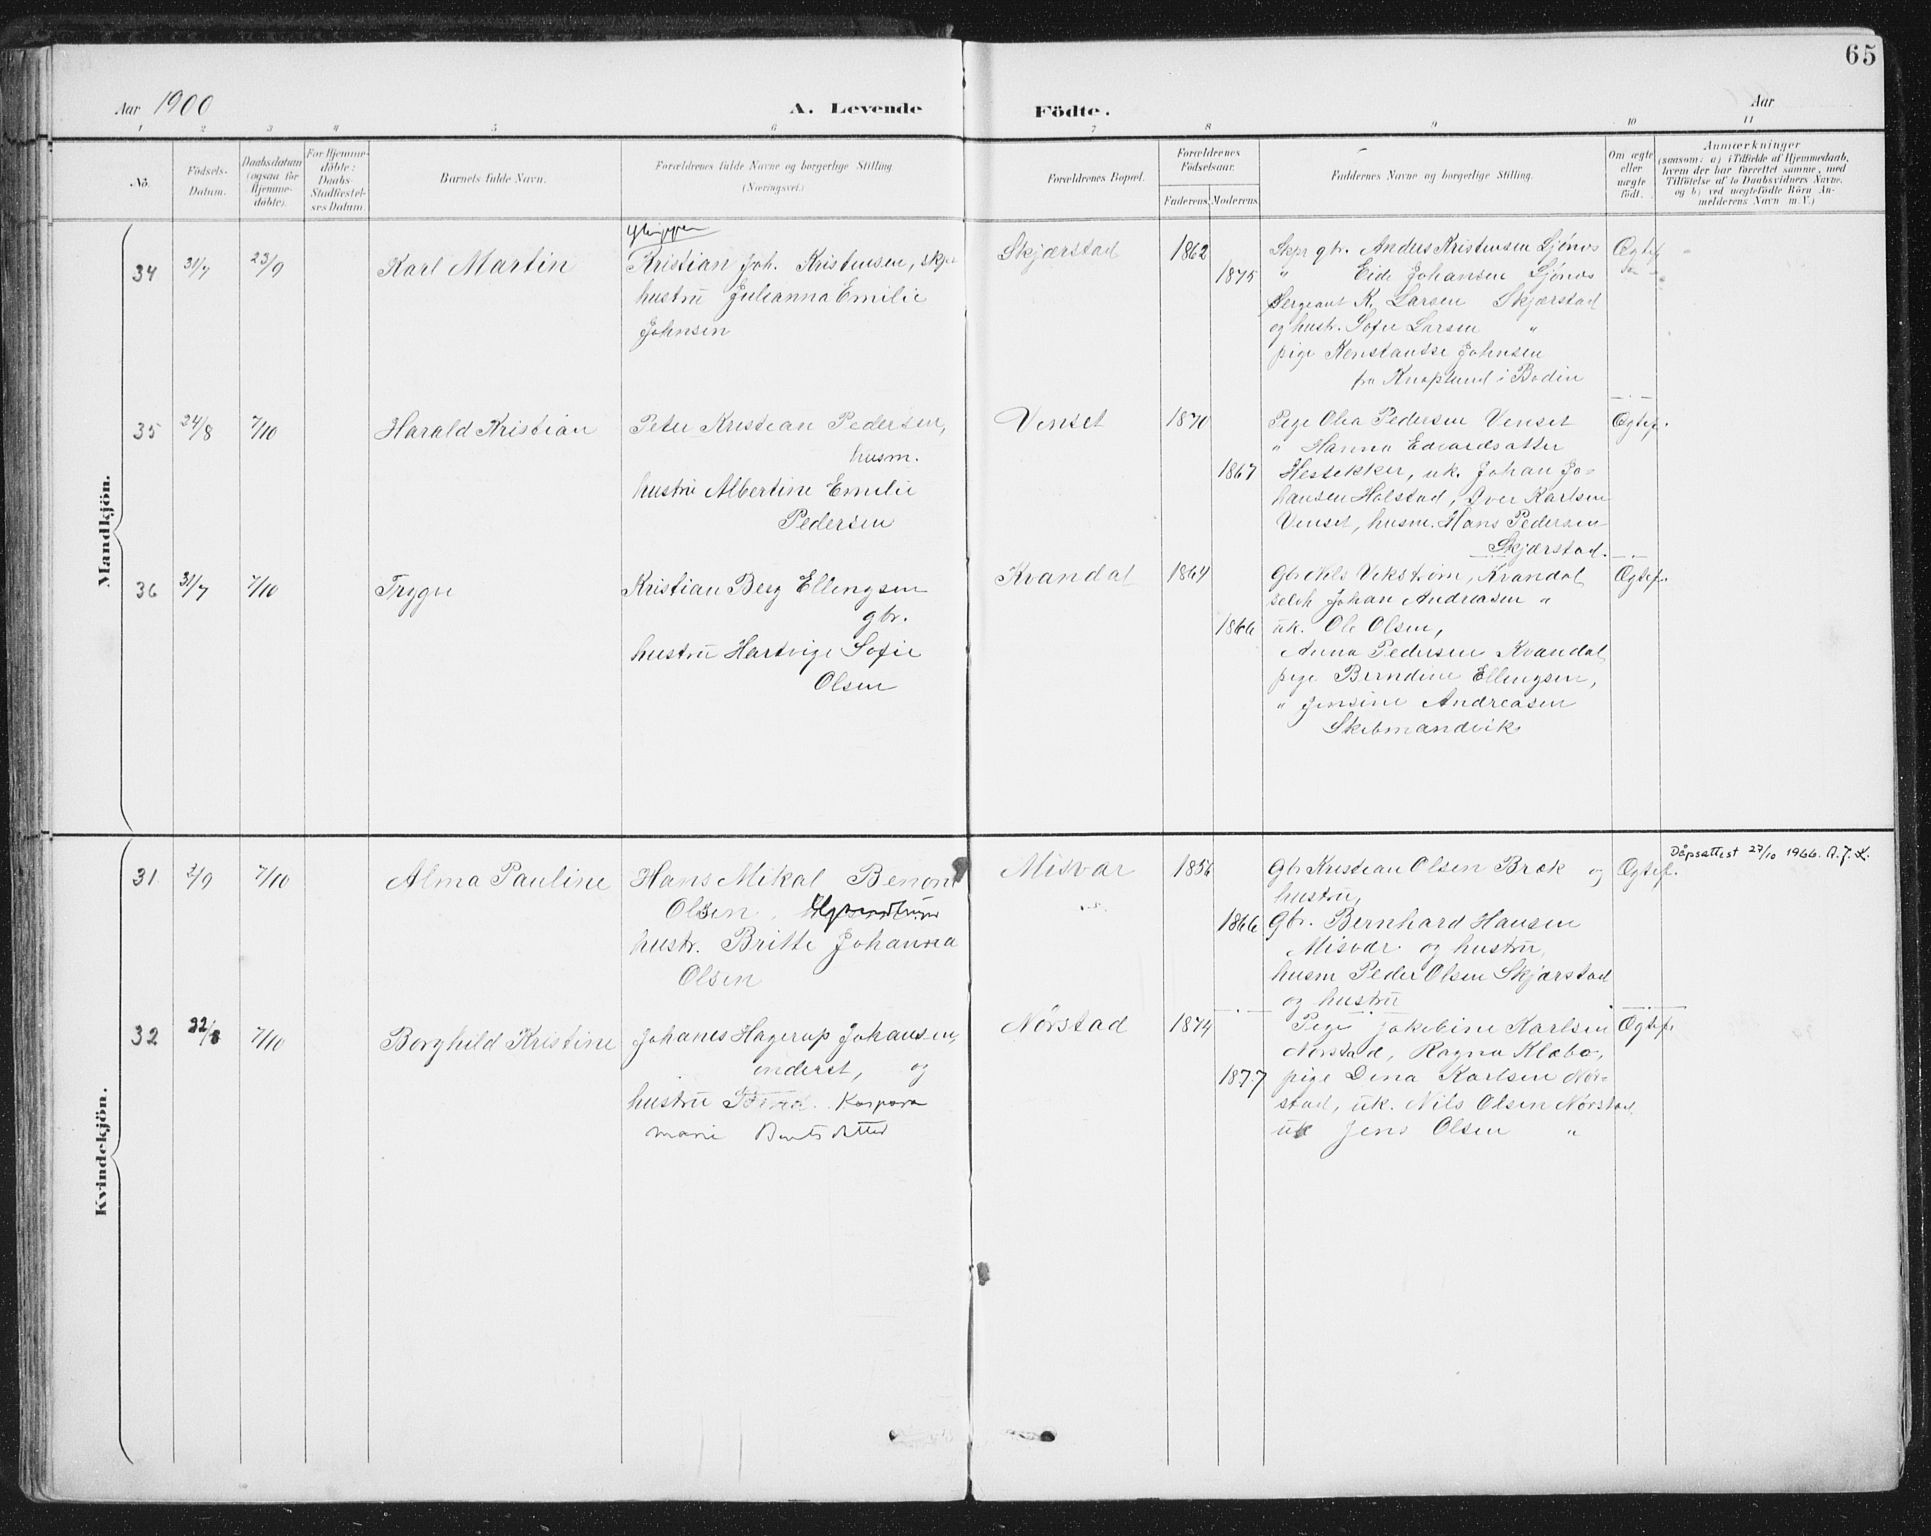 65
Aar 1900
A. Levende Födte.
Aar
1 2 3 4 5 6 7 8 9 10 11
No.
Födsels-
Datum.
Daabsdatum
(ogsaa for
Hjemme-
döbte).
For Hjemme-
döbte:
Daabs-
Stadfæstel-
ses Datum.
Barnets fulde Navn.
Forældrenes fulde Navne og borgerlige Stilling
(Næringsvei.)
Forældrenes Bopæl.
Forældrenes
Födselsaar.
Faderens. Moderens.
Faddernes Navne og borgerlige Stilling.
Om ægte
eller
uægte
födt.
Anmærkninger
(saasom: a) i Tilfælde af Hjemmedaab,
hvem der har forrettet samme, med
Tilföielse af to Daabsvidners Navne,
og b) ved uægtefödte Börn An-
melderens Navn m. V.)
Mandkjön.
34 31/7 23/9 Karl Martin
Kristian Joh. Kristensen, skpr
hustru Julianna Emilie
Johnsen
Skjærstad
1862
1875
Skpr gbr. Anders Kristensen Ljönes
" Eide Johansen Ljönes
Sergeant K. Larsen Skjærstad
og hustr. Sofie Larsen "
pige Konstansse Johnsen
fra Knaplund i Bodin
Ægtef.
35 24/8 7/10 Harald Kristian
Peter Kristian Pedersen,
husm.
hustru Albertine Emilie
Pedersen
Venset
1870
1867
Pige Olea Pedersen Venset
" Hanna Edvardsatter
Hestekker, uk. Johan Jo-
hansen Holstad, Iver Karlsen
Venset, husm. Hans Pedersen
Skjærstad.
Ægtef.
36 31/7 7/10 Trygve
Kristian Berg Ellingsen
gbr.
hustru Hartvige Sofie
Olsen
Kvandal
1864
1866
Gbr Nils Vekström, Kvandal
selvh Johan Andreasen "
uk. Ole Olsen,
Anna Pedersen Kvandal
pige Berndine Ellingsen,
" Jensine Andreasen
Skibmandvik
Ægtef.
Kvindekjön.
31 2/9 7/10 Alma Pauline
Hans Mikal Benoni
Olsen,
hustr. Britte Johanna
Olsen
Misvær
1856
1866
Gbr Kristian Olsen Bræk og
hustru,
Gbr. Bernhard Hansen
Misvær og hustru,
husm Peder Olsen Skjærstad
og hustru
Ægtef.
Dåpsattest 27/10 1966. A.J.L.
32 22/8 7/10 Borghild Kristine
Johanes Hagerup Johansen,
inderst, og
hustru Kaspara
Marie Bentsdatter
Nörstad
1874
1877
Pige Jakobine Karlsen
Nörstad, Ragna Klæbo,
pige Dina Karlsen Nör-
stad, uk. Nils Olsen Nörstad
uk Jens Olsen "
Ægtef.